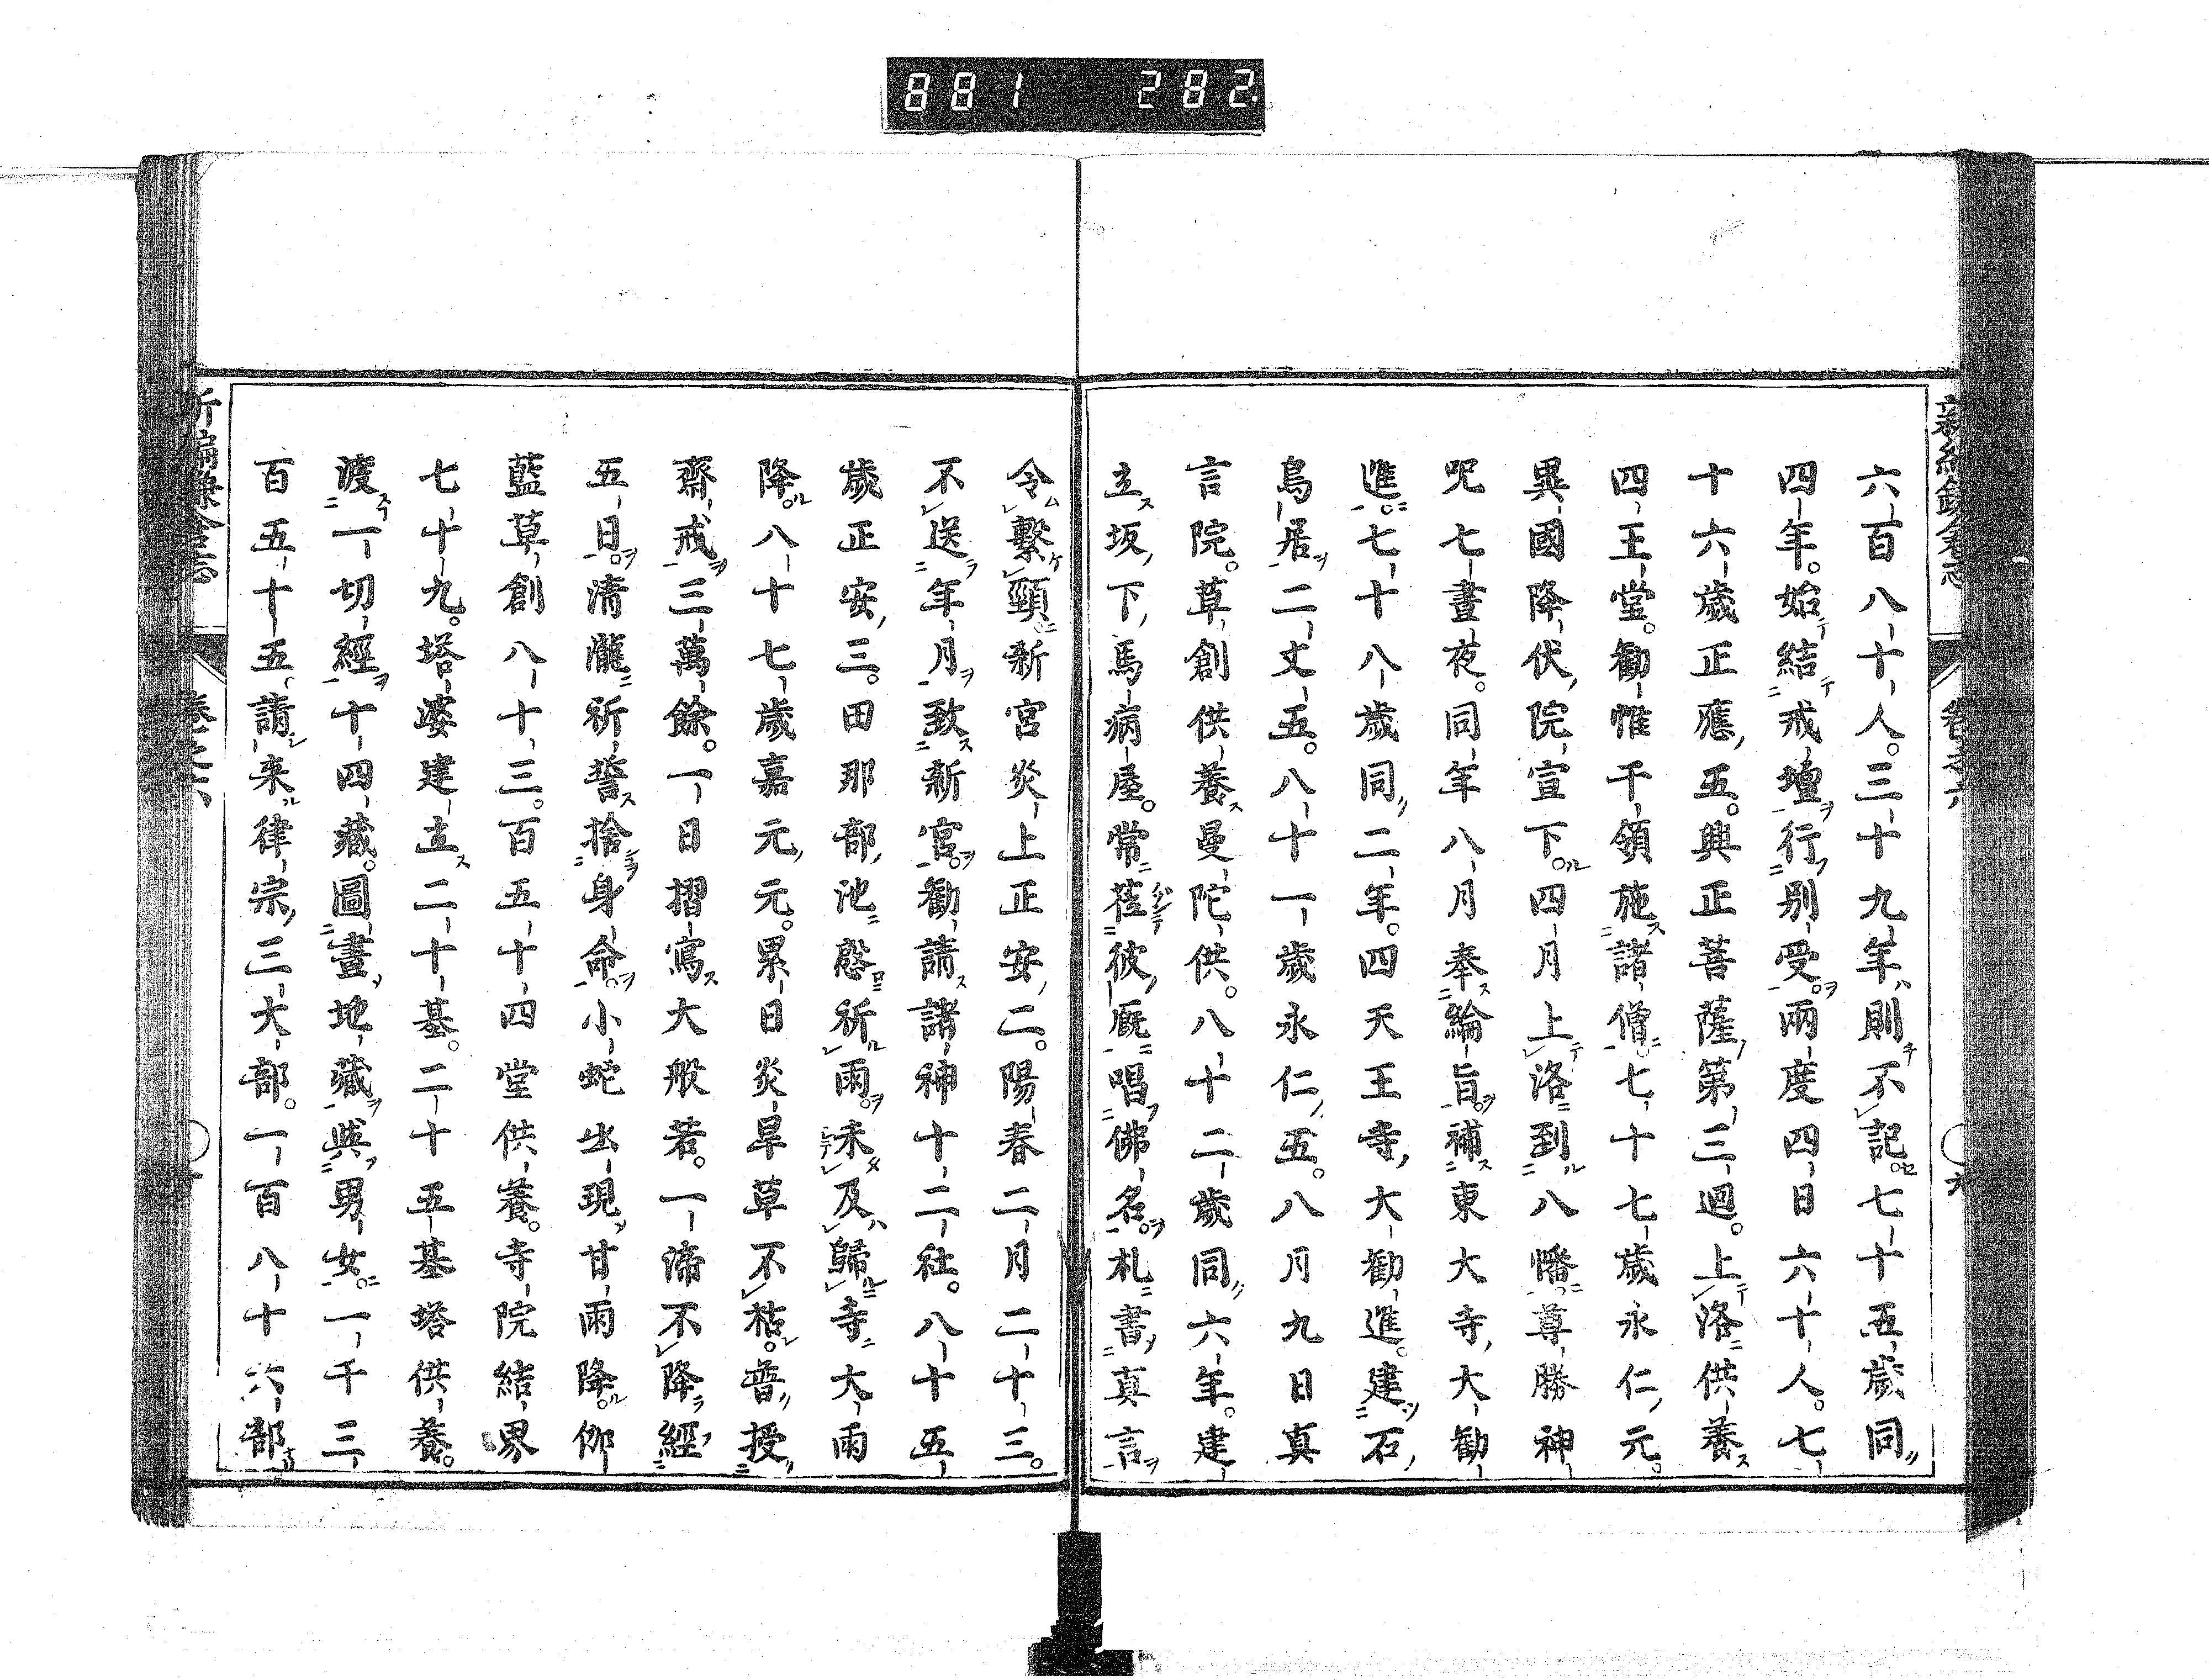 881 282
新編鎌倉志
卷之六
六百八十人。三十九年則不記。七十五歲同
四年。始結戒壇行別受。兩度四日六十人。七
十六歲正應五。興正菩薩第三迴。上洛供養
四王堂。勸惟千領施諸僧。七十七歲永仁元。
異國降伏院宣下。四月上洛到八幡尊勝神
呪七晝夜。同年八月奉綸旨。補東大寺大勸
進。七十八歲同二年。四天王寺大勸進。建石
鳥居二丈五。八十一歲永仁五。八月九日真
言院。草創供養曼陀供。八十二歲同六年。建
立坂下馬病屋。常莅彼厩唱佛名。札書真言
令繫頸新宮炎上正安二。陽春二月二十三。
不送年月致新宮。勸請諸神十二社。八十五
歲正安三。田那部池慇祈雨。未及歸寺大雨
降。八十七歲嘉元元。累日炎旱草不枯。普授
齋戒三萬餘。一日摺寫大般若。一渧不降經
五日。清瀧祈誓捨身命。小蛇出現甘雨降。伽
藍草創八十三。百五十四堂供養。寺院結界
七十九。塔婆建立二十基。二十五基塔供養。
渡一切經十四藏。圖畫地藏與男女。一千三
百五十五。請來律宗三大部。一百八十六部
新編鎌倉志
卷之六